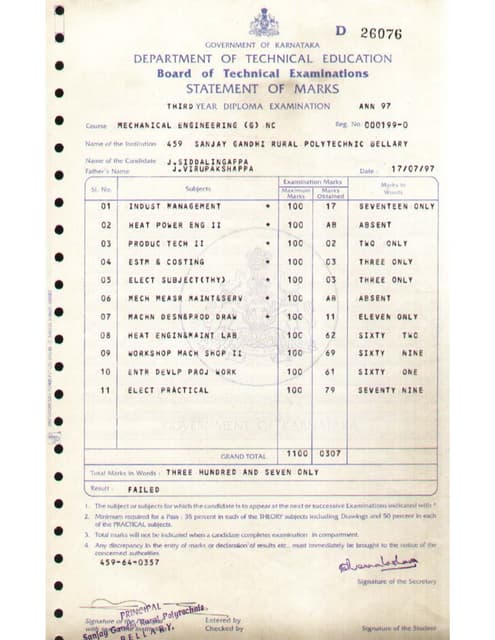 D 26076
GOVERNMENT OF KARNATAKA
DEPARTMENT OF TECHNICAL EDUCATION
Board of Technical Examinations
STATEMENT OF MARKS
THIRD YEAR DIPLOMA EXAMINATION ANN 97
Course MECHANICAL ENGINEERING (G) NC Reg. No. 000199-0
Name of the Institution 459 SANJAY GANDHI RURAL POLYTECHNIC BELLARY
Name of the Candidate J.SIDDALINGAPPA
Father's Name J.VIRUPAKSHAPPA Date : 17/07/97
Sl. No. Subjects Examination Marks Marks in Words
Maximum Marks Marks Obtained
01 INDUST MANAGEMENT * 100 17 SEVENTEEN ONLY
02 HEAT POWER ENG II * 100 AB ABSENT
03 PRODUC TECH II * 100 02 TWO ONLY
04 ESTM & COSTING * 100 03 THREE ONLY
05 ELECT SUBJECT(THY) * 100 03 THREE ONLY
06 MECH MEASR MAINT&SERV * 100 AB ABSENT
07 MACHN DESN&PROD DRAW * 100 11 ELEVEN ONLY
08 HEAT ENGIN&MAINT LAB 100 62 SIXTY TWO
09 WORKSHOP MACH SHOP II 100 69 SIXTY NINE
10 ENTR DEVLP PROJ WORK 100 61 SIXTY ONE
11 ELECT PRACTICAL 100 79 SEVENTY NINE
GOVERNMENT OF KARNATAKA
GRAND TOTAL 1100 0307
Total Marks in Words : THREE HUNDRED AND SEVEN ONLY
Result : FAILED
1. The subject or subjects for which the candidate is to appear at the next or successive Examinations indicated with *
2. Minimum required for a Pass : 35 percent in each of the THEORY subjects including Drawings and 50 percent in each of the PRACTICAL subjects.
3. Total marks will not be indicated when a candidate completes examination in compartment.
4. Any discrepancy in the entry of marks or declaration of results etc., must immediately be brought to the notice of the concerned authorities.
459-64-0357
Signature of the Secretary
PRINCIPAL
Sanjay Gandhi Rural Polytechnic
BELLARY.
Signature of the
Entered by
Checked by
Signature of the Student